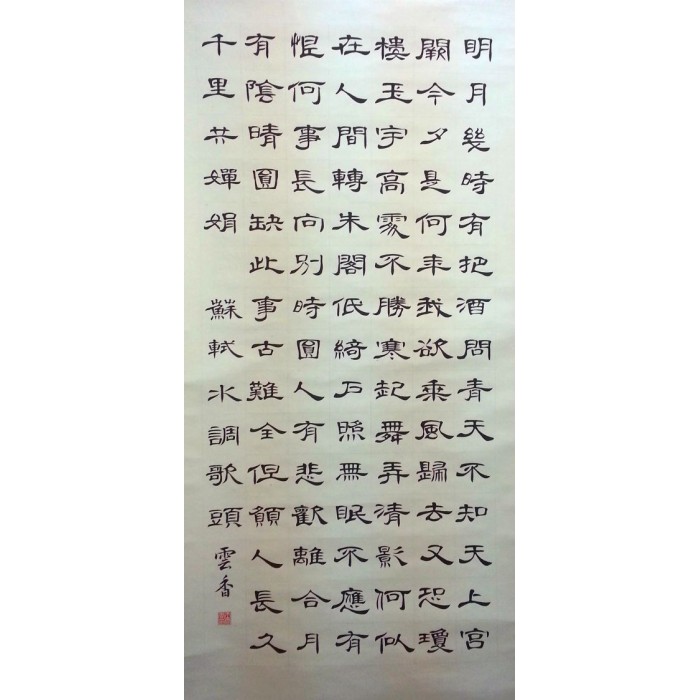 明月幾時有把酒問青天不知天上宮
闕今夕是何年我欲乘風歸去又恐瓊
樓玉宇高處不勝寒起舞弄清影何似
在人間轉朱閣低綺戶照無眠不應有
恨何事長向別時圓人有悲歡離合月
有陰晴圓缺此事古難全但願人長久
千里共嬋娟 蘇軾水調歌頭 雲香